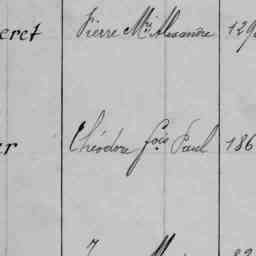 eret Pierre M.ie Alexandre 129
er Théodore fçois Paul 186